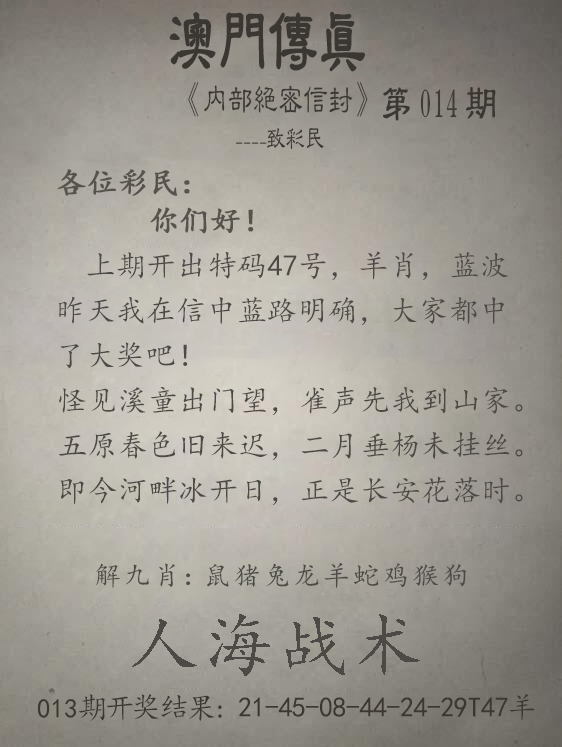 澳門傳眞
《内部絕密信封》第014期
----致彩民
各位彩民：
你们好！
上期开出特码47号，羊肖，蓝波
昨天我在信中蓝路明确，大家都中
了大奖吧！
怪见溪童出门望，雀声先我到山家。
五原春色旧来迟，二月垂杨未挂丝。
即今河畔冰开日，正是长安花落时。
解九肖：鼠猪兔龙羊蛇鸡猴狗
人海战术
013期开奖结果：21-45-08-44-24-29T47羊